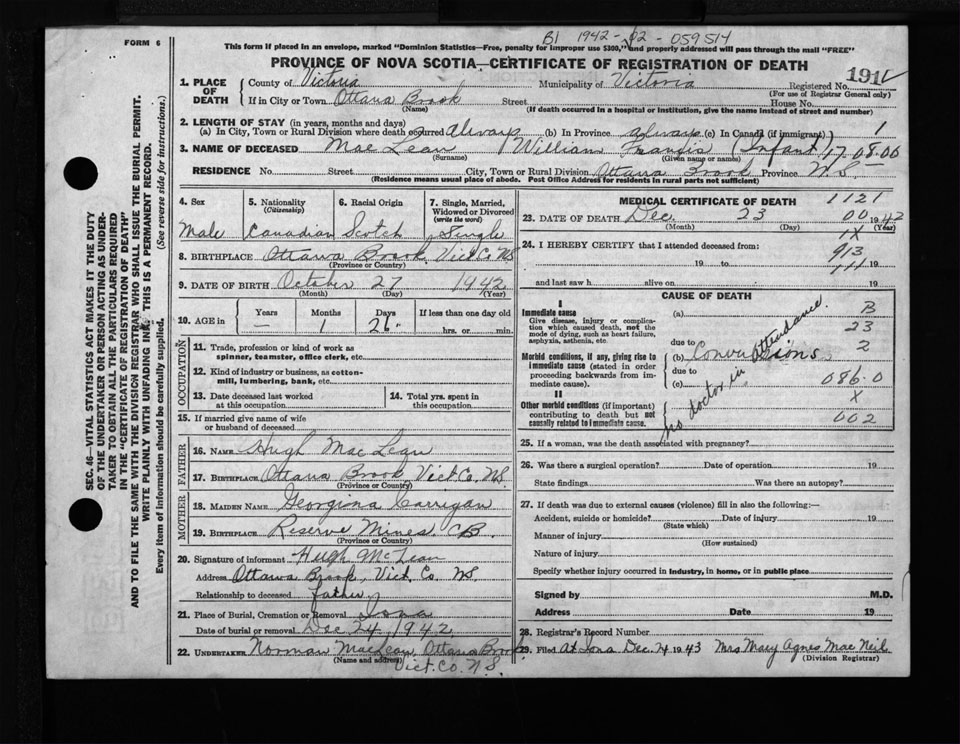 FORM 6
B1 1942-02-059514
This form if placed in an envelope, marked "Dominion Statistics—Free, penalty for improper use $300," and properly addressed will pass through the mail "FREE"
PROVINCE OF NOVA SCOTIA—CERTIFICATE OF REGISTRATION OF DEATH
1. PLACE OF DEATH
County of Victoria Municipality of Victoria Registered No. 191
(For use of Registrar General only)
If in City or Town Ottawa Brook Street House No.
(Name) (If death occurred in a hospital or institution, give the name instead of street and number)
2. LENGTH OF STAY (in years, months and days)
(a) In City, Town or Rural Division where death occurred always (b) In Province always (c) In Canada (if immigrant) 1
3. NAME OF DECEASED Mac Lean William Francis (Infant) 17.08.00
(Surname) (Given name or names)
RESIDENCE No. Street City, Town or Rural Division Ottawa Brook Province N.S.
(Residence means usual place of abode. Post Office Address for residents in rural parts not sufficient)
4. Sex 5. Nationality (Citizenship) 6. Racial Origin 7. Single, Married, Widowed or Divorced (write the word)
Male Canadian Scotch Single
8. BIRTHPLACE Ottawa Brook, Vict. Co. N.S
(Province or Country)
9. DATE OF BIRTH October 27 1942
(Month) (Day) (Year)
10. AGE in Years Months Days If less than one day old
— 1 26 hrs. or min.
OCCUPATION
11. Trade, profession or kind of work as spinner, teamster, office clerk, etc.
12. Kind of industry or business, as cotton-mill, lumbering, bank, etc.
13. Date deceased last worked at this occupation
14. Total yrs. spent in this occupation
15. If married give name of wife or husband of deceased
FATHER
16. NAME Hugh Mac Lean
17. BIRTHPLACE Ottawa Brook, Vict. Co. N.S
(Province or Country)
MOTHER
18. MAIDEN NAME Georgina Carrigan
19. BIRTHPLACE Reserve Mines. C.B.
(Province or Country)
20. Signature of informant Hugh McLean
Address Ottawa Brook, Vict. Co. N.S.
Relationship to deceased father
21. Place of Burial, Cremation or Removal Iona
Date of burial or removal Dec 24, 1942
22. UNDERTAKER Norman MacLean, Ottawa Brook
(Name and address) Vict. Co. N.S.
MEDICAL CERTIFICATE OF DEATH 1121
23. DATE OF DEATH Dec. 23 00 1942
(Month) (Day) (Year)
1X
24. I HEREBY CERTIFY that I attended deceased from:
913
19 to 19
111
and last saw h alive on 19
CAUSE OF DEATH
I
Immediate cause
Give disease, injury or complication which caused death, not the mode of dying, such as heart failure, asphyxia, asthenia, etc.
(a) B
23
due to 2
Morbid conditions, if any, giving rise to immediate cause (stated in order proceeding backwards from immediate cause).
(b) Convulsions
due to
(c) 086.0
II X
Other morbid conditions (if important) contributing to death but not causally related to immediate cause.
002
no doctor in attendance.
25. If a woman, was the death associated with pregnancy?
26. Was there a surgical operation? Date of operation 19
State findings Was there an autopsy?
27. If death was due to external causes (violence) fill in also the following:—
Accident, suicide or homicide? Date of injury 19
(State which)
Manner of injury
(How sustained)
Nature of injury
Specify whether injury occurred in industry, in home, or in public place
Signed by M.D.
Address Date 19
28. Registrar's Record Number
29. Filed At Iona Dec. 24 1943 Mrs Mary Agnes Mac Neil
(Division Registrar)
SEC. 46—VITAL STATISTICS ACT MAKES IT THE DUTY
OF THE UNDERTAKER OR PERSON ACTING AS UNDER-
TAKER TO OBTAIN ALL THE PARTICULARS REQUIRED
IN THE "CERTIFICATE OF REGISTRATION OF DEATH"
AND TO FILE THE SAME WITH THE DIVISION REGISTRAR WHO SHALL ISSUE THE BURIAL PERMIT.
WRITE PLAINLY WITH UNFADING INK. THIS IS A PERMANENT RECORD.
Every item of information should be carefully supplied. (See reverse side for instructions.)